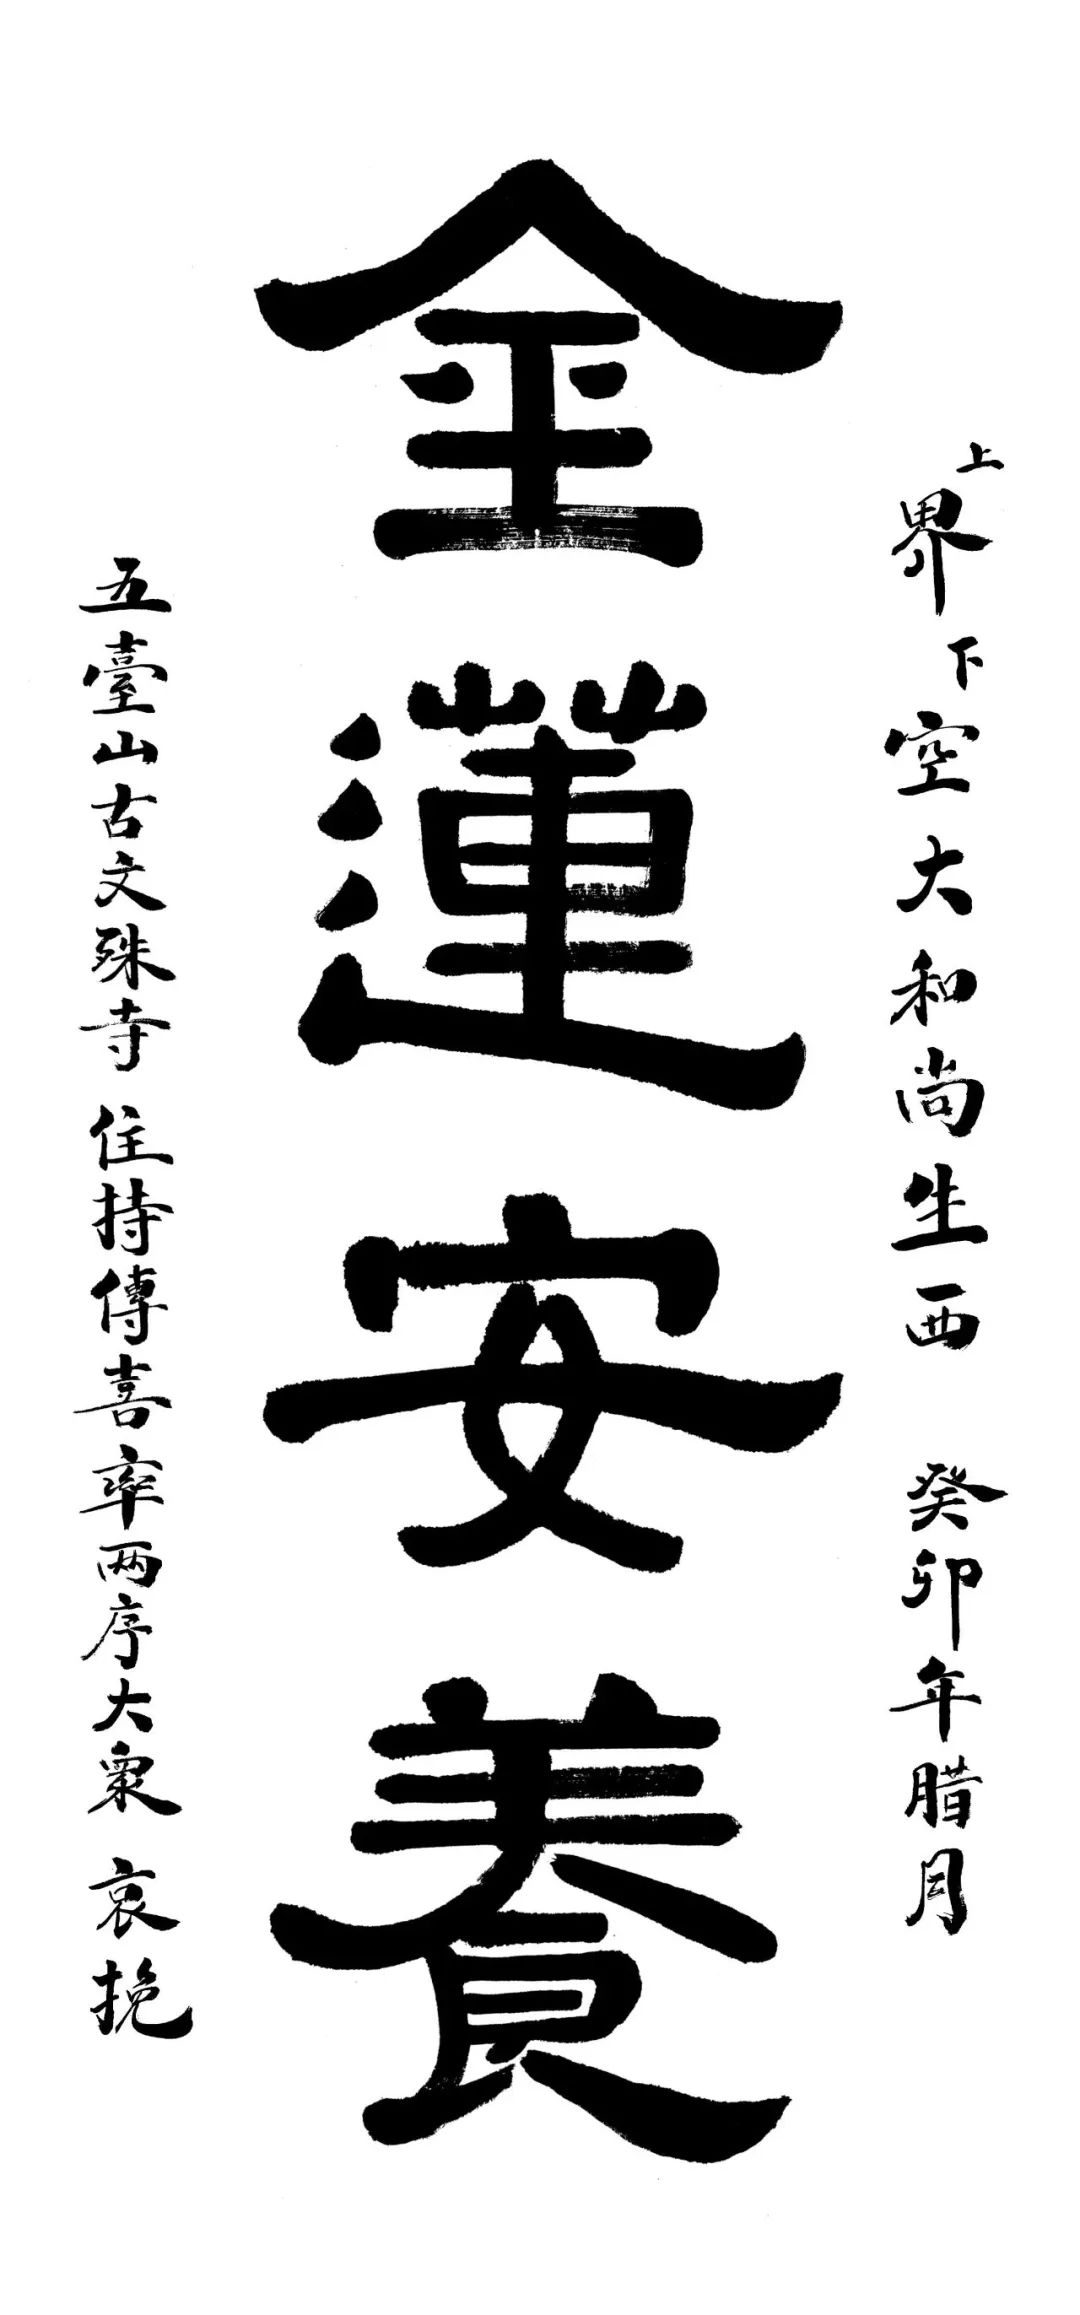 上界下空大和尚生西 癸卯年腊月
金蓮安養
五臺山古文殊寺 住持傳喜率两序大衆 哀挽